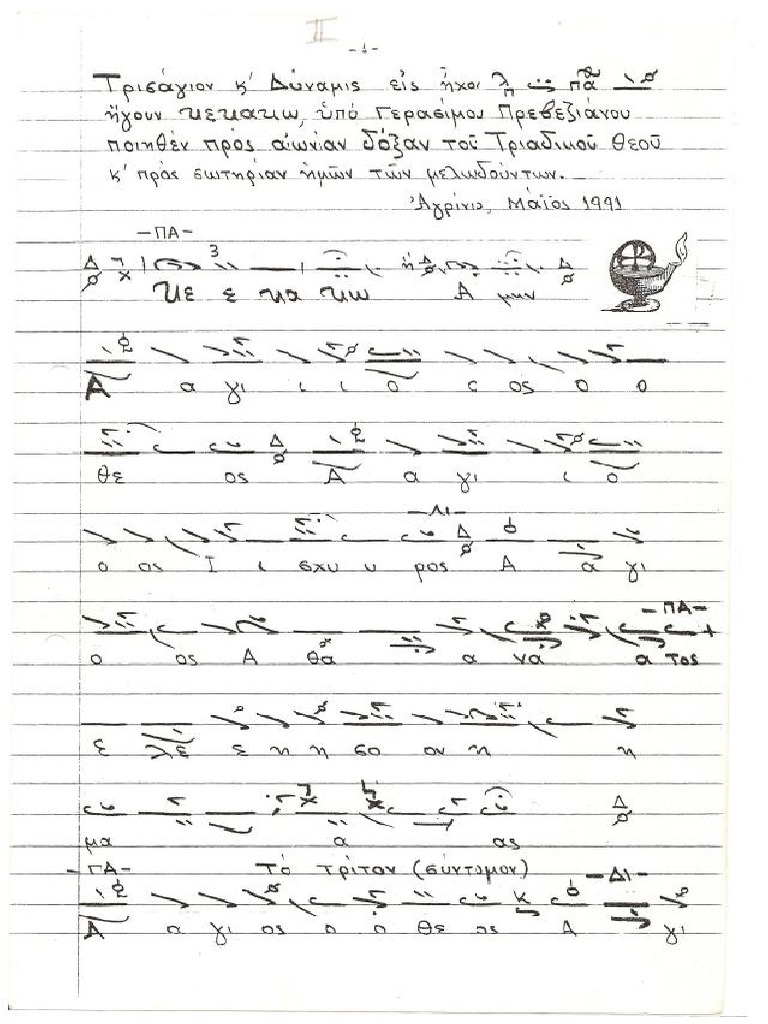 II
-1-
Τρισάγιον κ' Δύναμις εἰς ἦχον πα
ἤγουν κεκακω, ὑπό Γερασίμου Πρεβεζιάνου
ποιηθέν πρός αἰωνίαν δόξαν τοῦ Τριαδικοῦ Θεοῦ
κ' πρός σωτηρίαν ἡμῶν τῶν μελωδούντων.
Ἀγρίνιο, Μάϊος 1991
-ΠΑ-
κε ε κα κω Α μην
Α α γι ι ι ο ο ος ο ο
θε ος Α α γι ι ο
-ΔΙ-
ο ος Ι ι σχυ υ ρος Α α γι
-ΠΑ-
ο ος Α θα α να α τος
ε λε ε η η σο ον η η
μα α ας
-ΠΑ- Τό τρίτον (σύντομον) -ΔΙ-
Α α γι ος ο ο θε ος Α γι